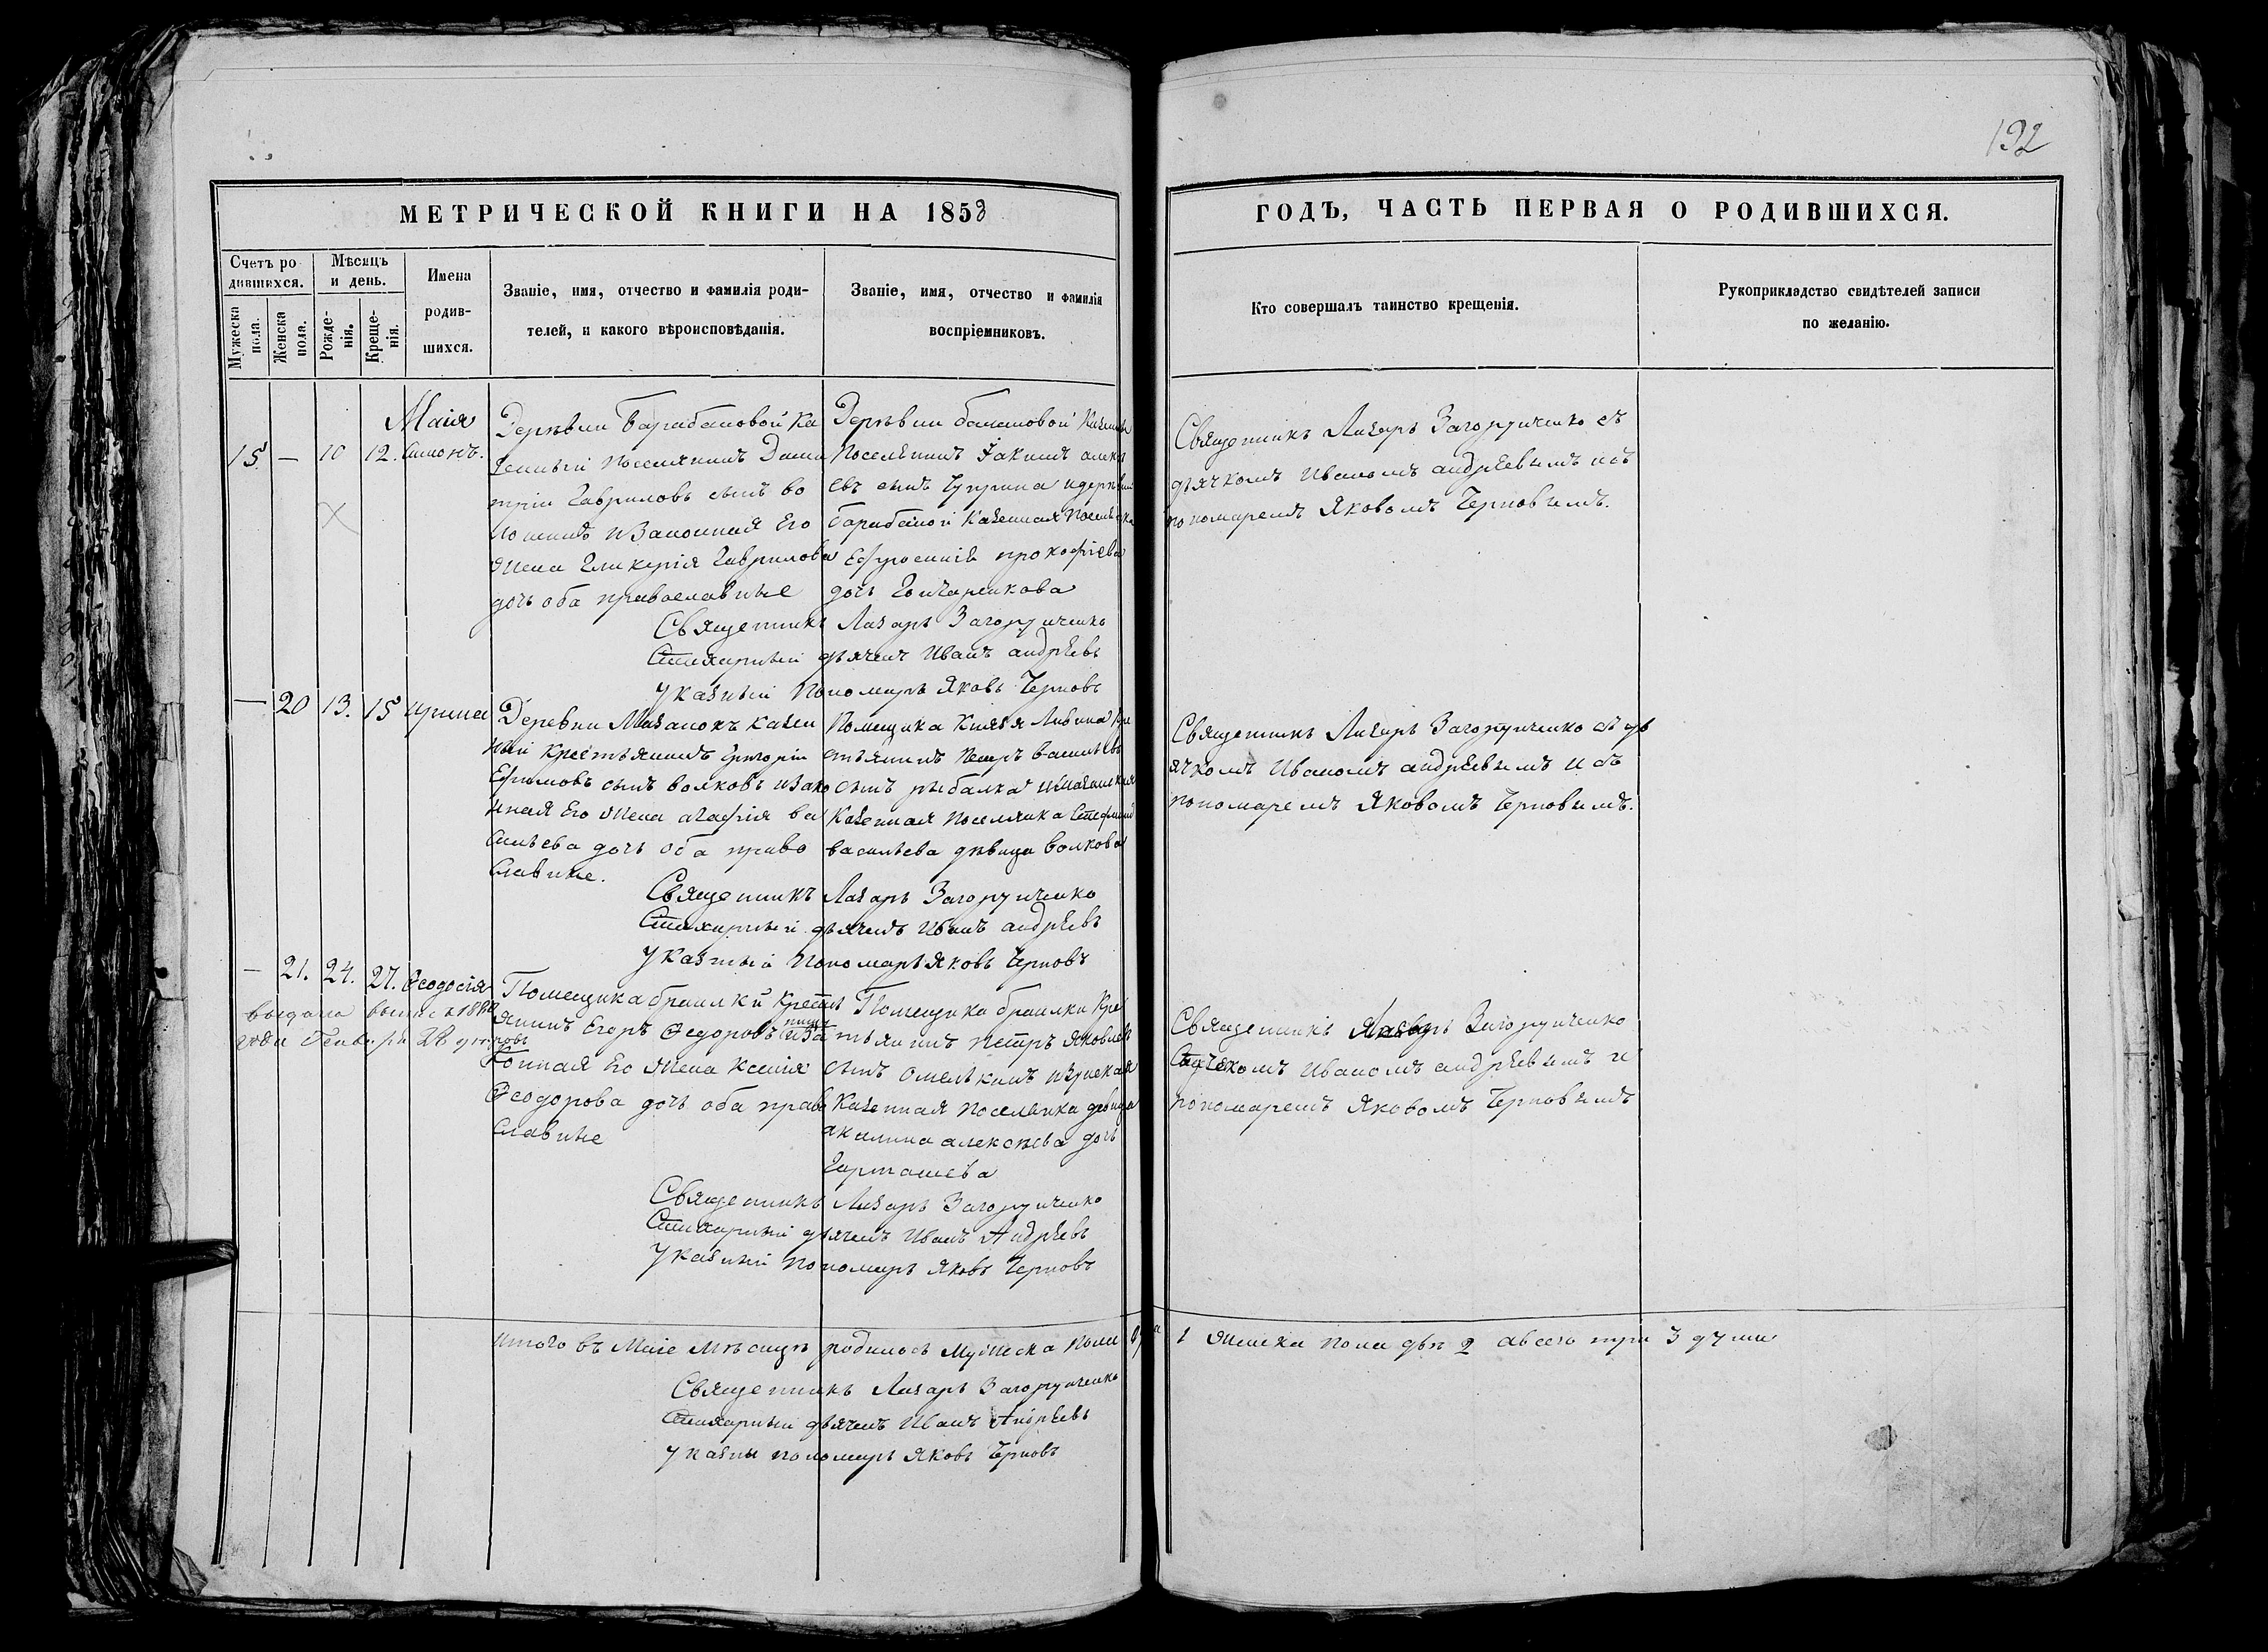 192
МЕТРИЧЕСКОЙ КНИГИ НА 1853
ГОДЪ, ЧАСТЬ ПЕРВАЯ О РОДИВШИХСЯ.
Счетъ ро
дившихся.
Мужеска
пола.
Женска
пола.
Мѣсяцъ
и день.
Рожде-
нія.
Креще-
нія.
Имена
родив-
шихся.
Званіе, имя, отчество и фамилія роди-
телей, и какого вѣроисповѣданія.
Званіе, имя, отчество и фамилія
воспріемниковъ.
Кто совершалъ таинство крещенія.
Рукоприкладство свидѣтелей записи
по желанію.
Маія
15 — 10 12. Симонъ.
Деревни Барабановой Ка
зенный Поселянинъ Дими
трій Гавриловъ сынъ во
и Законная Его
Жена Гликерія Гаврилова
дочь оба православные
Деревни
Поселянинъ Іакимъ
сынъ
Казенная
Ефросинія прокофіева
дочь Гончаренкова
Священникъ Лазарь Загоруиченко съ
дьячкомъ Иваномъ андрѣевымъ и съ
пономаремъ Яковомъ Черновымъ.
Священникъ Лазарь Загоруиченко
Стихарный дьячекъ Иванъ андрѣевъ
Указный Пономарь Яковъ Черновъ
— 20 13. 15 Ирина
Деревни Мазанокъ казен
ный крестьянинъ григорій
Ефимовъ сынъ волковъ и зако
нная Его Жена агафія ва
сильева дочь оба право
славные.
Помещика Князя Ливина кре
стьянинъ Петръ васильевъ
сынъ рыбалка
Казенная поселянка
васильева дѣвица волкова
Священникъ Лазарь Загоруиченко съ дь
ячкомъ Иваномъ андрѣевымъ и съ
пономаремъ Яковомъ Черновымъ.
Священникъ Лазарь Загоруиченко
Стихарный дьячекъ Иванъ андрѣевъ
Указный Пономарь Яковъ Черновъ
— 21. 24. 27. Ѳеодосія
выдана
года Генваря 28
Помещика браилки Кресть
янинъ Егоръ Ѳедоровъ и За
конная Его Жена Ксенія
Ѳеодорова дочь оба право
славные
Помещика браилки Кре
стьянинъ петръ Яковлевъ
сынъ
Казенная поселянка девица
акилина алексѣева дочь
Священникъ Лазарь Загоруиченко
дьячкомъ Иваномъ андрѣевымъ и
пономаремъ Яковомъ Черновымъ
Священникъ Лазарь Загоруиченко
Стихарный дьячекъ Иванъ Андрѣевъ
Указный пономарь Яковъ Черновъ
итого въ Маіе Мѣсяцѣ родилось Мужеска пола 1 женска пола двѣ 2 а всего три 3 души
Священникъ Лазарь Загоруиченко
Стихарный дьячекъ Иванъ Андрѣевъ
указны пономарь Яковъ Черновъ